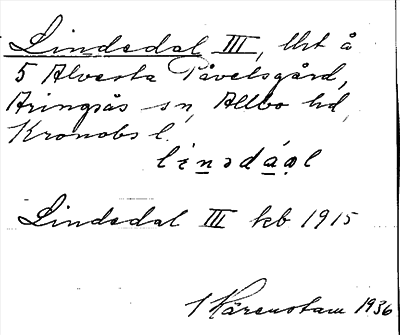 Lindsdal III, lht å
5 Alvesta Påvelsgård,
Aringsås sn, Allbo hd,
Kronobs l.
li̠n̠sdá̠a̠l
Lindsdal III kb 1915
Härenstam 1936